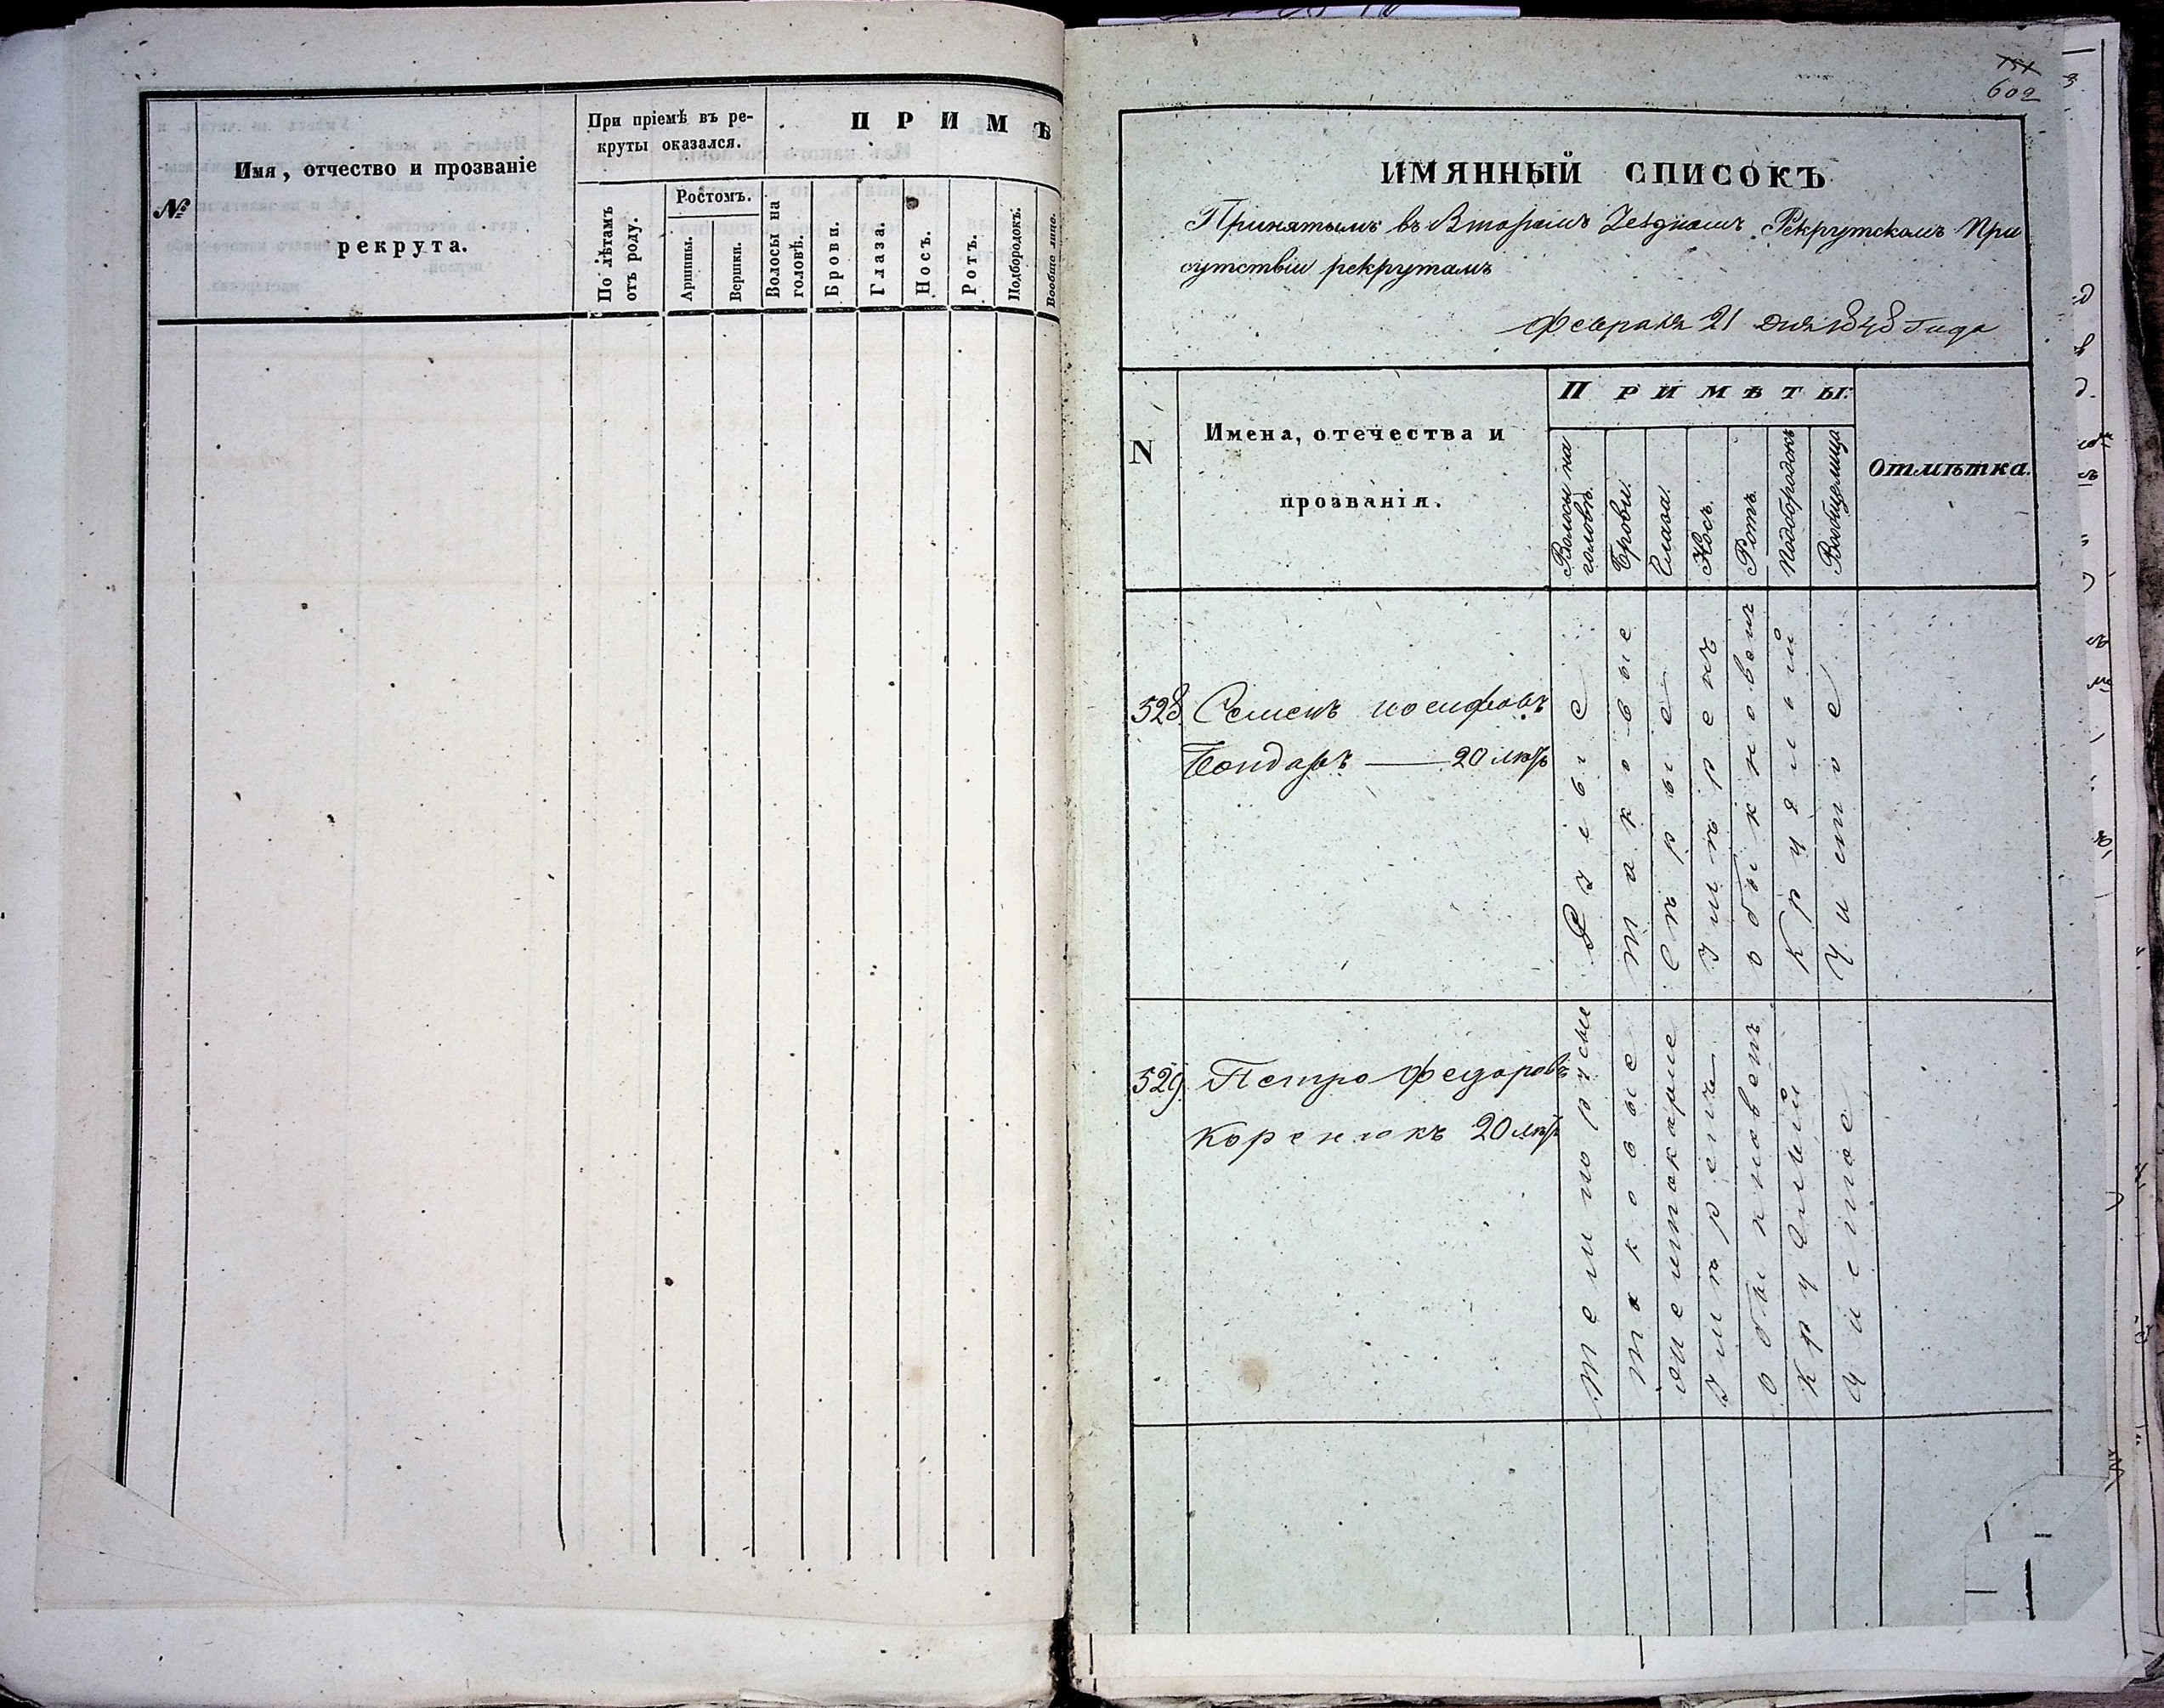 №
Имя, отчество и прозваніе
рекрута.
При пріемѣ въ ре-
круты оказался.
По лѣтамъ
отъ роду.
Ростомъ.
Аршины.
Вершки.
ПРИМѢ
Волосы на
головѣ.
Брови.
Глаза.
Носъ.
Ротъ.
Подбородокъ.
Вообще лицо.
151
602
ИМЯННЫЙ СПИСОКЪ
Принятымъ въ Второмъ Уездномъ Рекрутскомъ При
сутствіи рекрутамъ
Февраля 21 дня 1848 года
N
Имена, отечества и
прозванія.
ПРИМѢТЫ:
Волосы на
головѣ.
Брови.
Глаза.
Носъ.
Ротъ.
Подбородокъ
Вообще лица
Отмѣтка.
528 Семенъ иосифовъ
Бондарь — 20 лѣтъ
Таковые
Серые
Умѣренъ
обыкновенъ
Круглой
Чистое
529. Петро Федоровъ
Коренюкъ 20 лѣтъ
Темнорусые
Таковые
Умѣренъ
Обыкновенъ
Круглый
Чистое